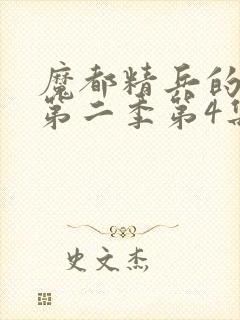 魔都精兵的
第二季第4集
史文杰